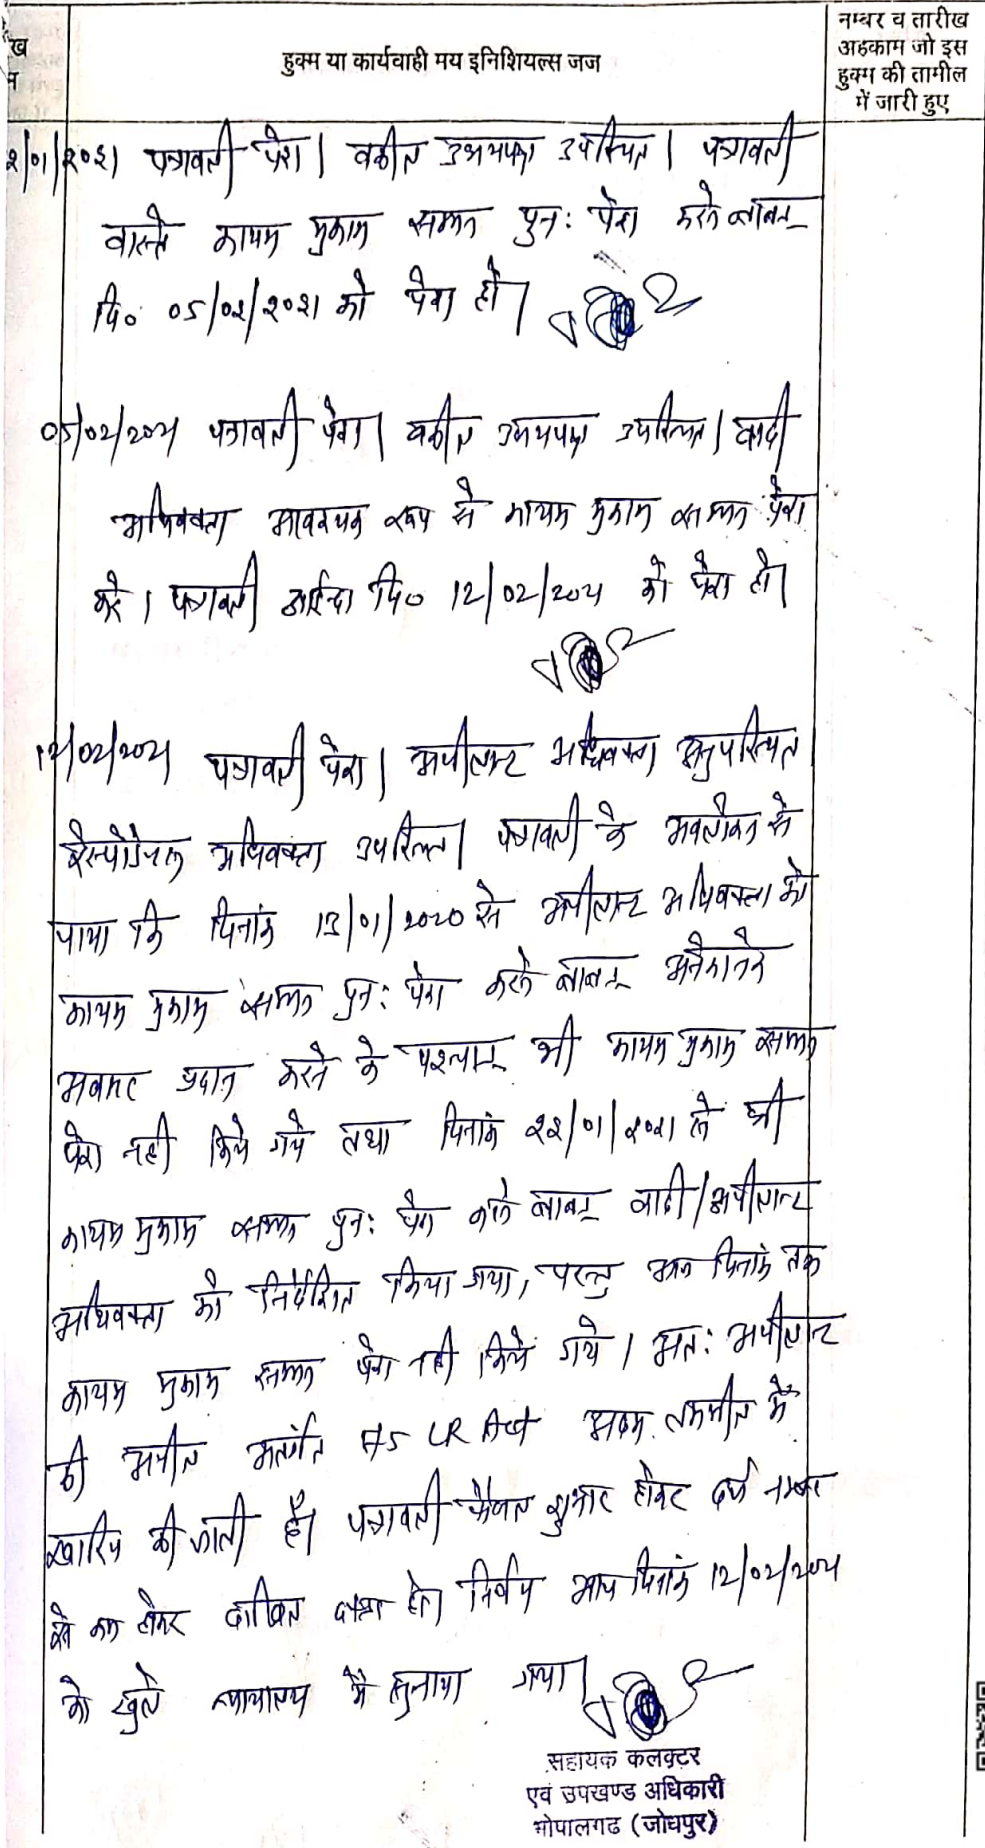 हुक्म या कार्यवाही मय इनिशियल्स जज
नम्बर व तारीख
अहकाम जो इस
हुक्म की तामील
में जारी हुए
ख
/01/2021 पत्रावली पेश। वकील उभयपक्ष उपस्थित। पत्रावली
वास्ते कायम मुकाम सम्मन पुनः पेश करने बाबत्
दि० 05/02/2021 को पेश हो।
05/02/2021 पत्रावली पेश। वकील उभयपक्ष उपस्थित। वादी
अधिवक्ता आवश्यक रूप से कायम मुकाम सम्मन पेश
करे। पत्रावली आईन्दा दि० 12/02/2021 को पेश हो।
12/02/2021 पत्रावली पेश। अपीलान्ट अधिवक्ता अनुपस्थित
रेस्पोडेन्ट अधिवक्ता उपस्थित। पत्रावली के अवलोकन से
पाया कि दिनांक 13/01/2020 से अपीलान्ट अधिवक्ता को
कायम मुकाम सम्मन पुनः पेश करने बाबत् अनेकानेक
अवसर प्रदान करने के पश्चात् भी कायम मुकाम सम्मन
पेश नही किये गये तथा दिनांक 22/01/2021 से भी
कायम मुकाम सम्मन पुनः पेश करने बाबत् वादी/अपीलान्ट
अधिवक्ता को निर्देशित किया गया, परन्तु आज दिनांक तक
कायम मुकाम सम्मन पेश नही किये गये। अतः अपीलान्ट
की अपील अन्तर्गत 75 LR Act अदम तकमील में
खारिज की जाती है। पत्रावली फैसल शुमार होकर दर्ज नम्बर
से कम होकर दाखिल दफ्तर हो। निर्णय आज दिनांक 12/02/2021
को खुले न्यायालय में सुनाया गया।
सहायक कलक्टर
एवं उपखण्ड अधिकारी
भोपालगढ (जोधपुर)